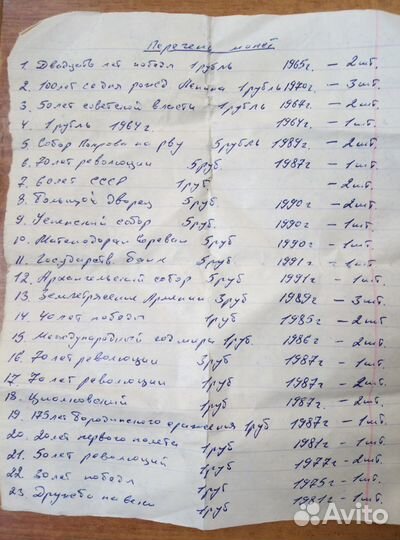 Перечень монет
1. Двадцать лет победы 1 рубль 1965г. – 2шт.
2. 100лет со дня рожд Ленина 1рубль 1970г. – 3шт.
3. 50лет советской власти 1рубль 1967г. – 2шт.
4. 1рубль 1964г. 1964г. – 1шт.
5 Собор Покрова на рву 5рубль 1989г. – 2шт.
6. 70лет революции 5руб. 1987г – 1шт.
7. 60лет СССР 1руб. – 2шт.
8. Большой Дворец 5руб 1990г – 2шт.
9. Успенский собор 5руб. 1990г. – 1шт.
10. Матенодаран Ереван 5руб 1990г – 1шт.
11. Государств Банк 5руб. 1991г – шт.
12. Архангельский собор 5руб 1991г – 1шт.
13. Землетрясение Армении 3руб 1989г – 3шт.
14 40лет победы 1руб 1985г – 2шт
15. Международный год мира 1руб. 1986г – 2шт.
16. 70лет революции 3руб 1987г – 1шт.
17. 70лет революции 1руб 1987г. – 2шт.
18. Циолковский 1руб 1987г. – 2шт.
19. 175лет бородинского сражения 1руб 1987г – 1шт.
20. 20лет первого полета 1руб 1981г – 1шт.
21. 50лет революций 1руб 1977г – 2шт.
22. 30лет победы 1руб 1975г – 1шт.
23. Дружба на веки 1руб 1981г – 1шт.
Avito